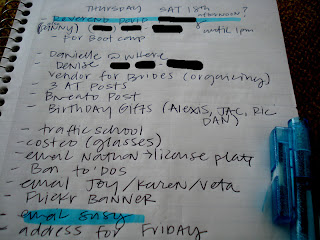 THURSDAY SAT 18th
Reverend David afternoon?
(Danny) until 1pm
- For Boot camp
- Danielle where
Denise
- Vendor for Brides (organizing)
- 3 AT Posts
- Bento Post
- BIRTHDAY GIFTS (Alexis, JAC, RIC
DAN)
- traffic school
- costco (glasses)
- email Nathan → license plate
Ban to'DOS
- email Joy/Karen/Veta
Flickr BANNER
- email Susy
address for FRIDAY